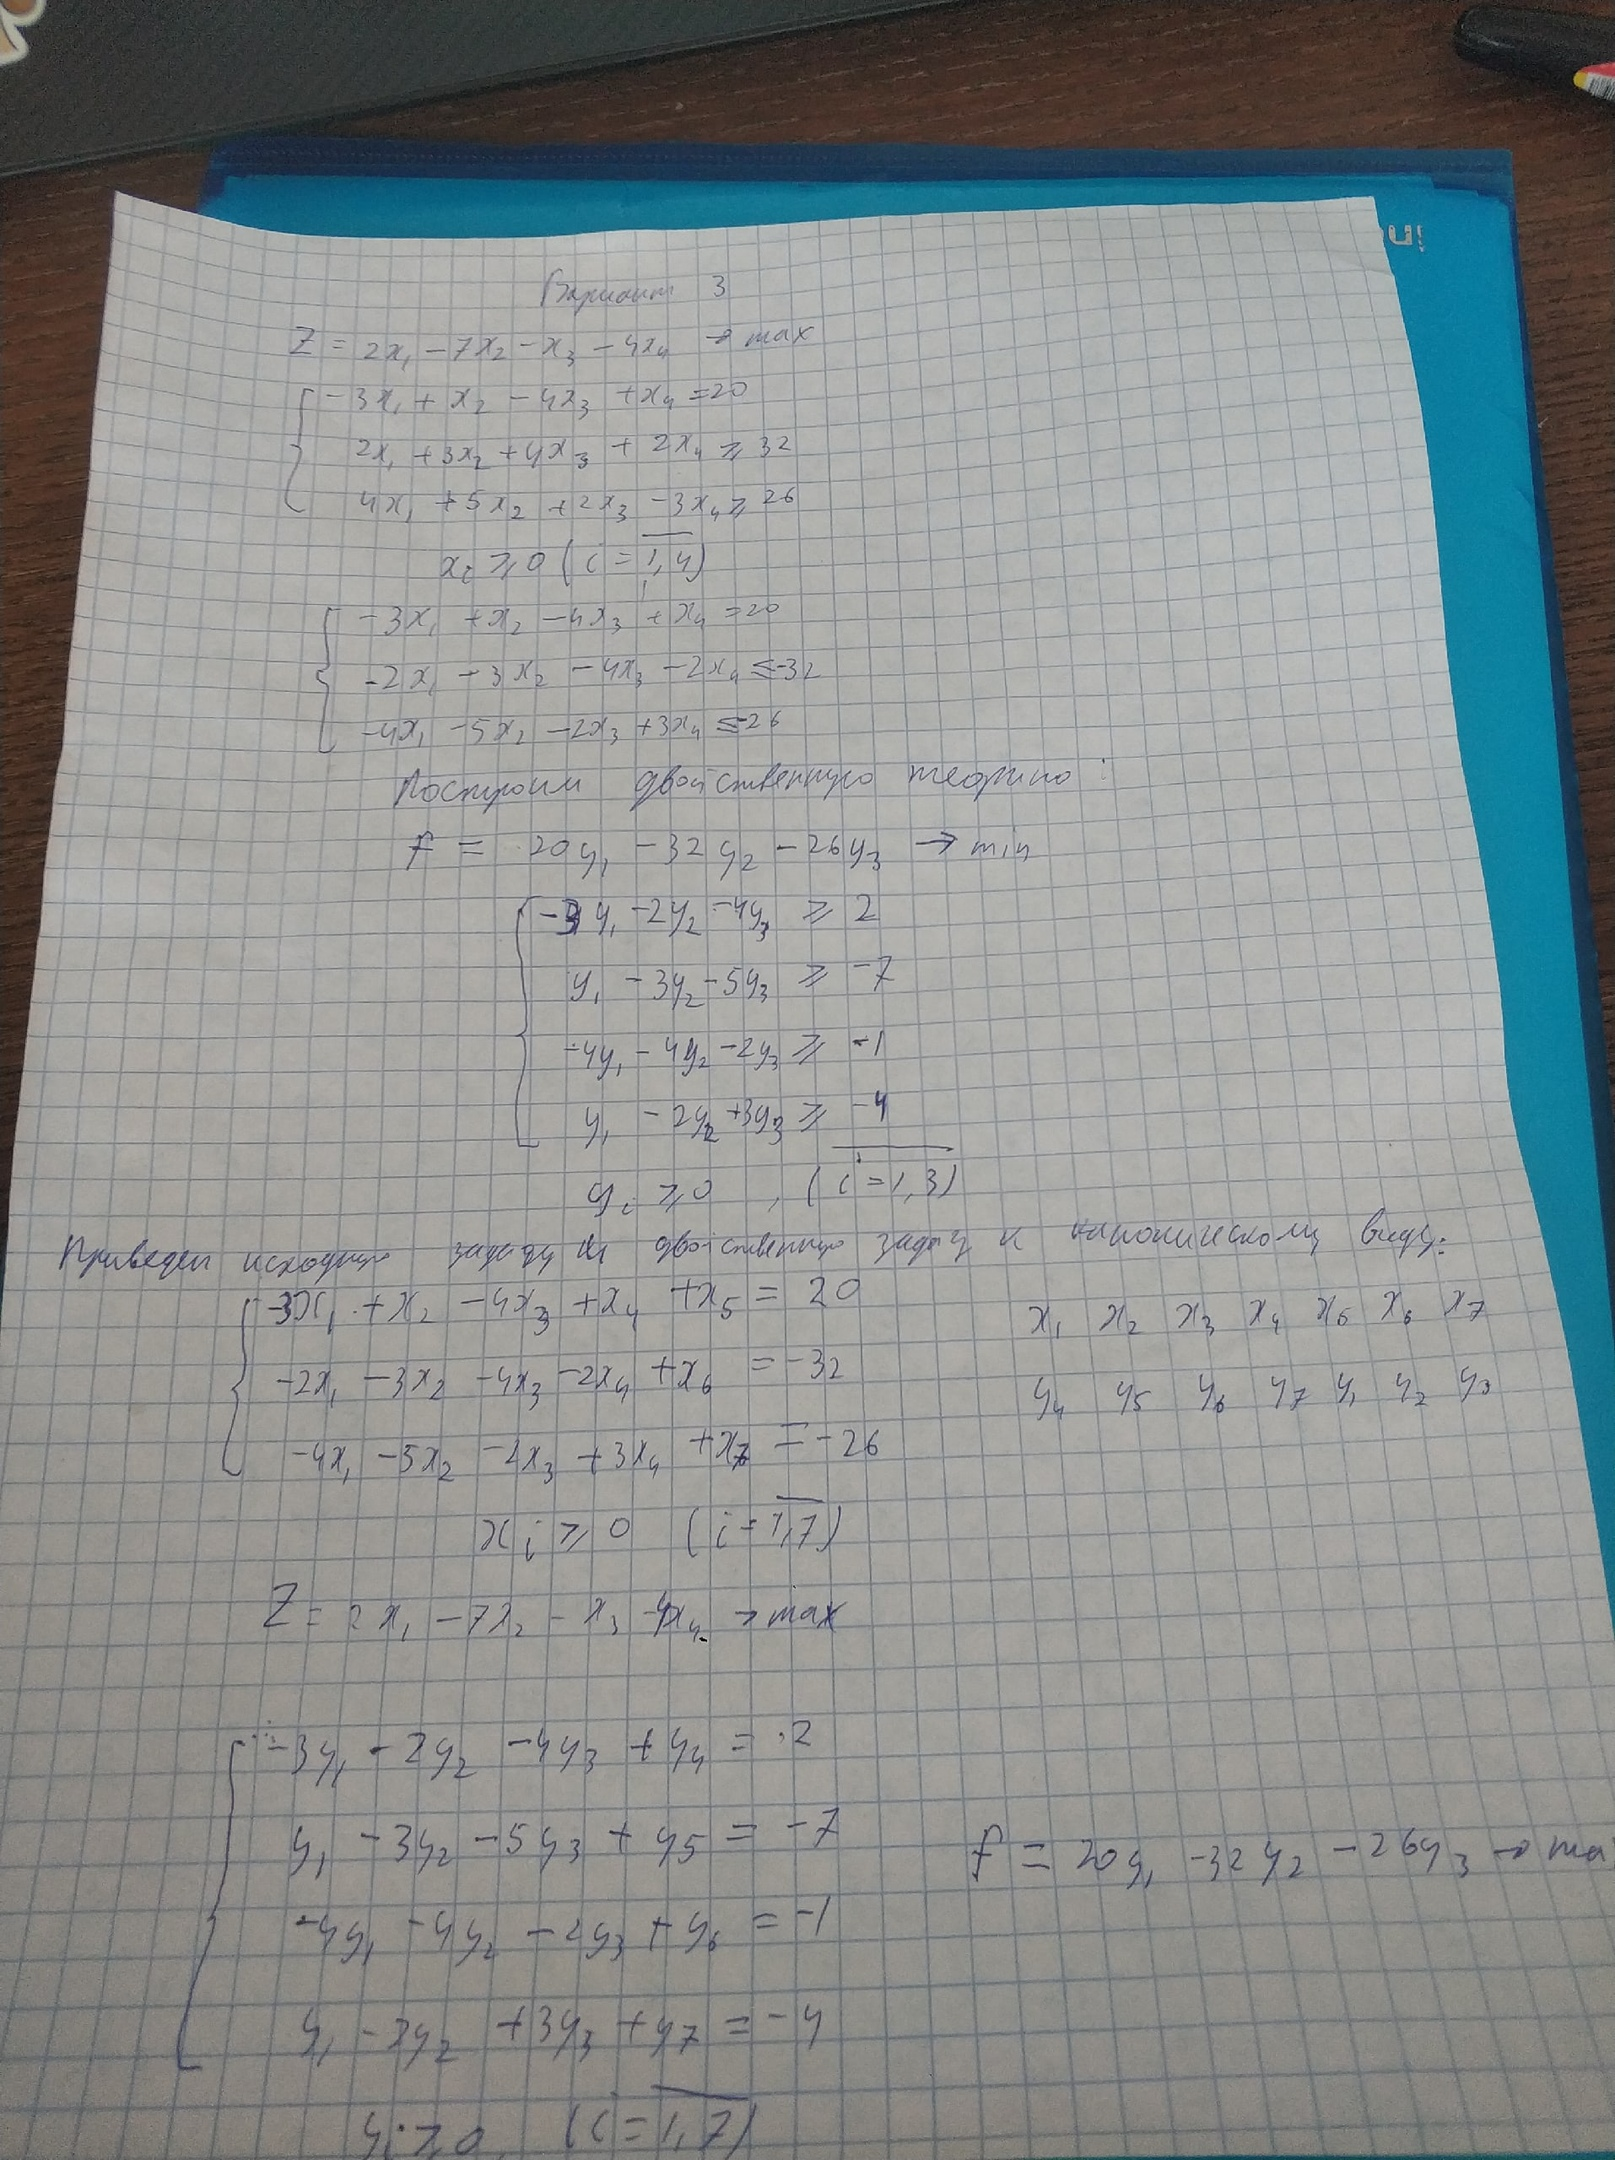 Вариант 3
Z = 2x₁ - 7x₂ - x₃ - 4x₄ → max
-3x₁ + x₂ - 4x₃ + x₄ = 20
2x₁ + 3x₂ + 4x₃ + 2x₄ ≥ 32
4x₁ + 5x₂ + 2x₃ - 3x₄ ≥ 26
xᵢ ≥ 0 (i = 1,4)
-3x₁ + x₂ - 4x₃ + x₄ = 20
-2x₁ - 3x₂ - 4x₃ - 2x₄ ≤ -32
-4x₁ - 5x₂ - 2x₃ + 3x₄ ≤ -26
Построим двойственную теорию:
f = 20y₁ - 32y₂ - 26y₃ → min
-3y₁ - 2y₂ - 4y₃ ≥ 2
y₁ - 3y₂ - 5y₃ ≥ -7
-4y₁ - 4y₂ - 2y₃ ≥ -1
y₁ - 2y₂ + 3y₃ ≥ -4
yᵢ ≥ 0, (i = 1,3)
Приведем исходную задачу и двойственную задачу к каноническому виду:
-3x₁ + x₂ - 4x₃ + x₄ + x₅ = 20
-2x₁ - 3x₂ - 4x₃ - 2x₄ + x₆ = -32
-4x₁ - 5x₂ - 2x₃ + 3x₄ + x₇ = -26
x₁ x₂ x₃ x₄ x₅ x₆ x₇
y₄ y₅ y₆ y₇ y₁ y₂ y₃
xᵢ ≥ 0 (i = 1,7)
Z = 2x₁ - 7x₂ - x₃ - 4x₄ → max
-3y₁ - 2y₂ - 4y₃ + y₄ = 2
y₁ - 3y₂ - 5y₃ + y₅ = -7
-4y₁ - 4y₂ - 2y₃ + y₆ = -1
y₁ - 2y₂ + 3y₃ + y₇ = -4
yᵢ ≥ 0 (i = 1,7)
f = 20y₁ - 32y₂ - 26y₃ → ma